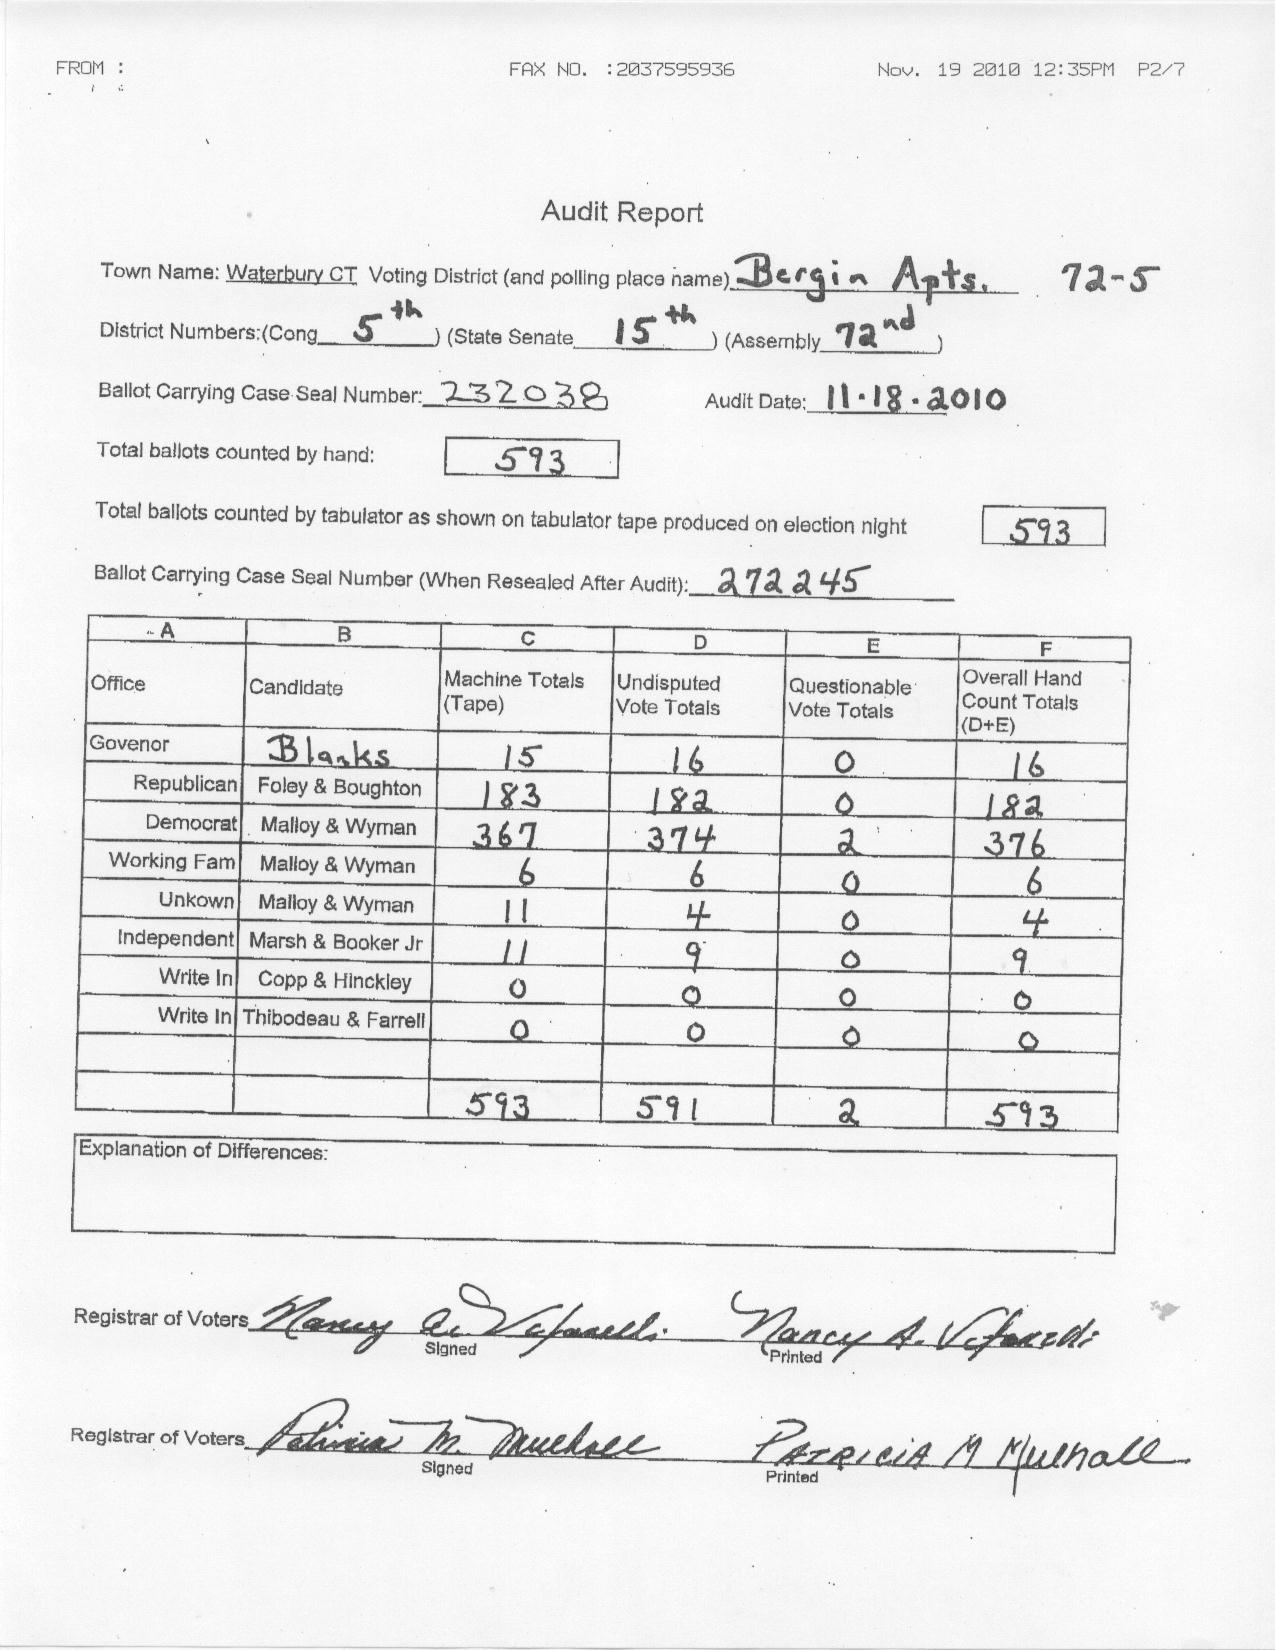 FROM : FAX NO. :2037595936 Nov. 19 2010 12:35PM P2/7
Audit Report
Town Name: Waterbury CT Voting District (and polling place name) Bergin Apts. 72-5
District Numbers:(Cong 5th ) (State Senate 15th ) (Assembly 72nd )
Ballot Carrying Case Seal Number: 232038 Audit Date: 11-18-2010
Total ballots counted by hand: 593
Total ballots counted by tabulator as shown on tabulator tape produced on election night 593
Ballot Carrying Case Seal Number (When Resealed After Audit): 272245
A B C D E F
Office Candidate Machine Totals (Tape) Undisputed Vote Totals Questionable Vote Totals Overall Hand Count Totals (D+E)
Govenor Blanks 15 16 0 16
Republican Foley & Boughton 183 182 0 182
Democrat Malloy & Wyman 367 374 2 376
Working Fam Malloy & Wyman 6 6 0 6
Unkown Malloy & Wyman 11 4 0 4
Independent Marsh & Booker Jr 11 9 0 9
Write In Copp & Hinckley 0 0 0 0
Write In Thibodeau & Farrell 0 0 0 0
593 591 2 593
Explanation of Differences:
Registrar of Voters Nancy A. Nancy A.
Signed Printed
Registrar of Voters Patricia M. Mulhall PATRICIA M Mulhall
Signed Printed